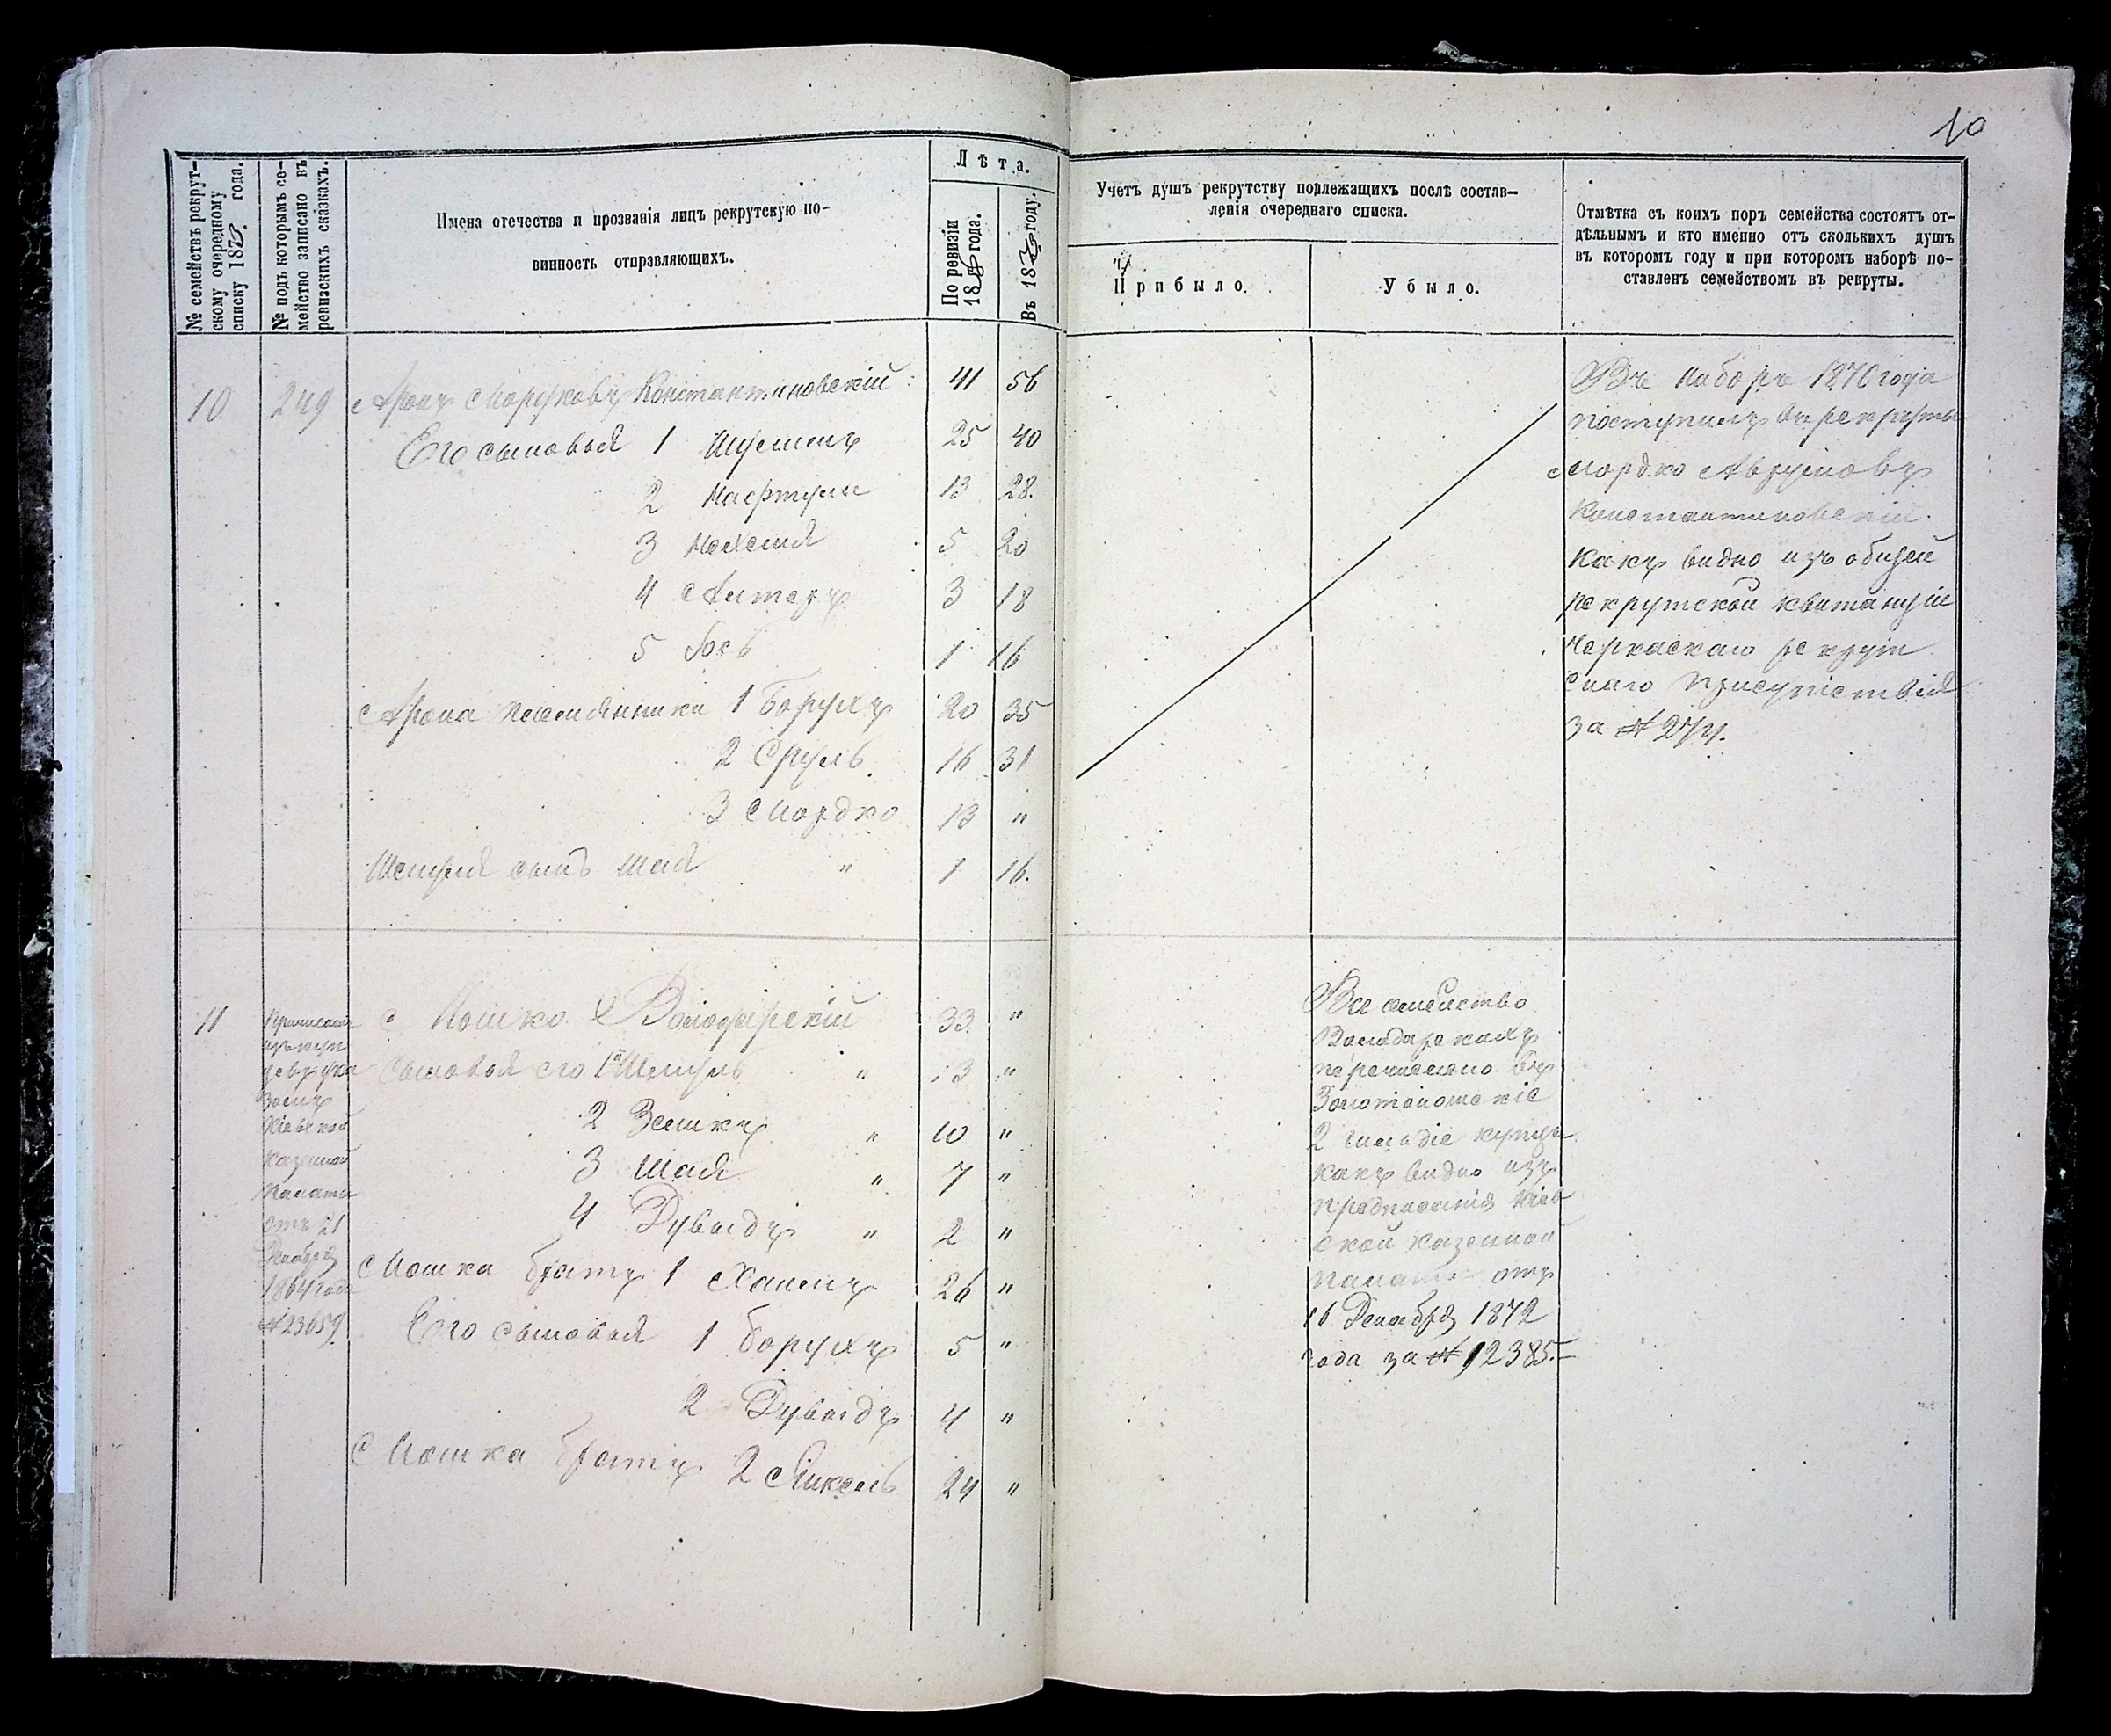 10
№ семействъ рекрут-
скому очередному
списку 1873 года.
№ подъ которымъ се-
мейство записано въ
ревизскихъ сказкахъ.
Имена отечества и прозванія лицъ рекрутскую по-
винность отправляющихъ.
Лѣта.
По ревизіи
1858 года.
Въ 1873 году.
Учетъ душъ рекрутству подлежащихъ послѣ состав-
ленія очереднаго списка.
Прибыло.
Убыло.
Отмѣтка съ коихъ поръ семейства состоятъ от-
дѣльнымъ и кто именно отъ сколькихъ душъ
въ которомъ году и при которомъ наборѣ по-
ставленъ семействомъ въ рекруты.
10 249 Аронъ Мордковъ Константиновскій 41 56
Его сыновья 1 25 40
2 Нафтули 13 28.
3 5 20
4 Алтеръ 3 18
5 Іосъ 1 16
Арона племянники 1 Борухъ 20 35
2 Сруль 16 31
3 Мордко 13 "
сынъ Шая " 1 16.
Въ наборъ 1870 года
поступилъ въ рекруты
Мордко Аврумовъ
Константиновскій
какъ видно изъ общей
рекрутской квитанціи
Черкаскаго рекрут
скаго Присутствія
за №
11 Мошко Володарскій 33 "
Сыновья его 1й Шмуль " 13 "
2 Зеликъ " 10 "
3 Шая " 7 "
4 Дувидъ " 2 "
Мошка братъ 1 Хаимъ 26 "
Его сыновья 1 Борухъ 5 "
2 Дувидъ 4 "
Мошка братъ 2 Янкель 24 "
Причислен
изъ куп
указа
Кіевской
Казенной
Палаты
отъ 21
Декабря
1864 года
№ 23659
Все семейство
Володарскихъ
перечислено въ
Золотоношскіе
2 гильдіе купцы
какъ видно изъ
предписанія Кіев
ской Казенной
Палаты отъ
16 Декабря 1872
года за № 12385.